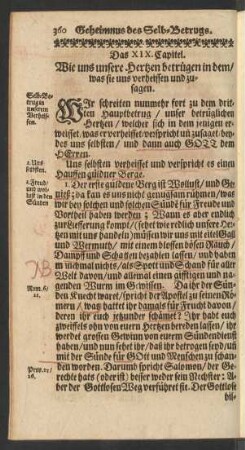 360 Geheimnus des Selb-Betrugs.
Das XIX. Capitel.
Wie uns unsere Hertzen betrügen in dem/
was sie uns verheissen und zu-
sagen.
Selb-Be-
trug in
unserm
Verheis-
sen.
WIr schreiten nunmehr fort zu dem drit-
ten Hauptbetrug / unser betrüglichen
Hertzen / welcher sich in dem jenigen er-
weiset/was er verheisset/verspricht un zusaget/bey-
des uns selbsten / und dann auch GOTT dem
HErren.
1. Uns
selbsten.
Uns selbsten verheisset und verspricht es einen
Hauffen güldner Berge.
1. Freud/
und wol-
lust in den
Sünden
1. Der erste guldene Berg ist Wollust/ und Ge-
nieß: da kan es uns nicht genugsam rühmen/was
wir bey solchen und solchen Sünde für Freude und
Vortheil haben werden; Wann es aber endlich
zur Lieferung komt/
mit uns handeln) müssen wir uns mit eitel Gall
und Wermuth/ mit einem blossen bösen Rauch/
Dampff und Schatten bezahlen lassen / und haben
niemahl nichts/als Spott und Schande für aller
Welt davon/und allermal einen gifftigen und na-
genden Wurm im Gewissen. Da ihr der Sün-
Rom. 6/
21.
den Knecht waret/spricht der Apostel zu seinen Rö-
mern / was hattet ihr damals für Frucht davon/
deren ihr euch jetzunder schämet? Ihr habt euch
zweiffels ohn von euern Hertzen bereden lassen / ihr
werdet grossen Gewinn von euerm Sündendienst
haben/und nun sehet ihr/daß ihr betrogen seyd/und
mit der Sünde für GOtt und Menschen zu schan-
den worden. Darum spricht Salomon/ der Ge-
Prov. 12/
26.
rechte hats (oderist) besser weder sein Nechster: A-
ber der Gottlosen Weg verführet sie. Der Gottlose